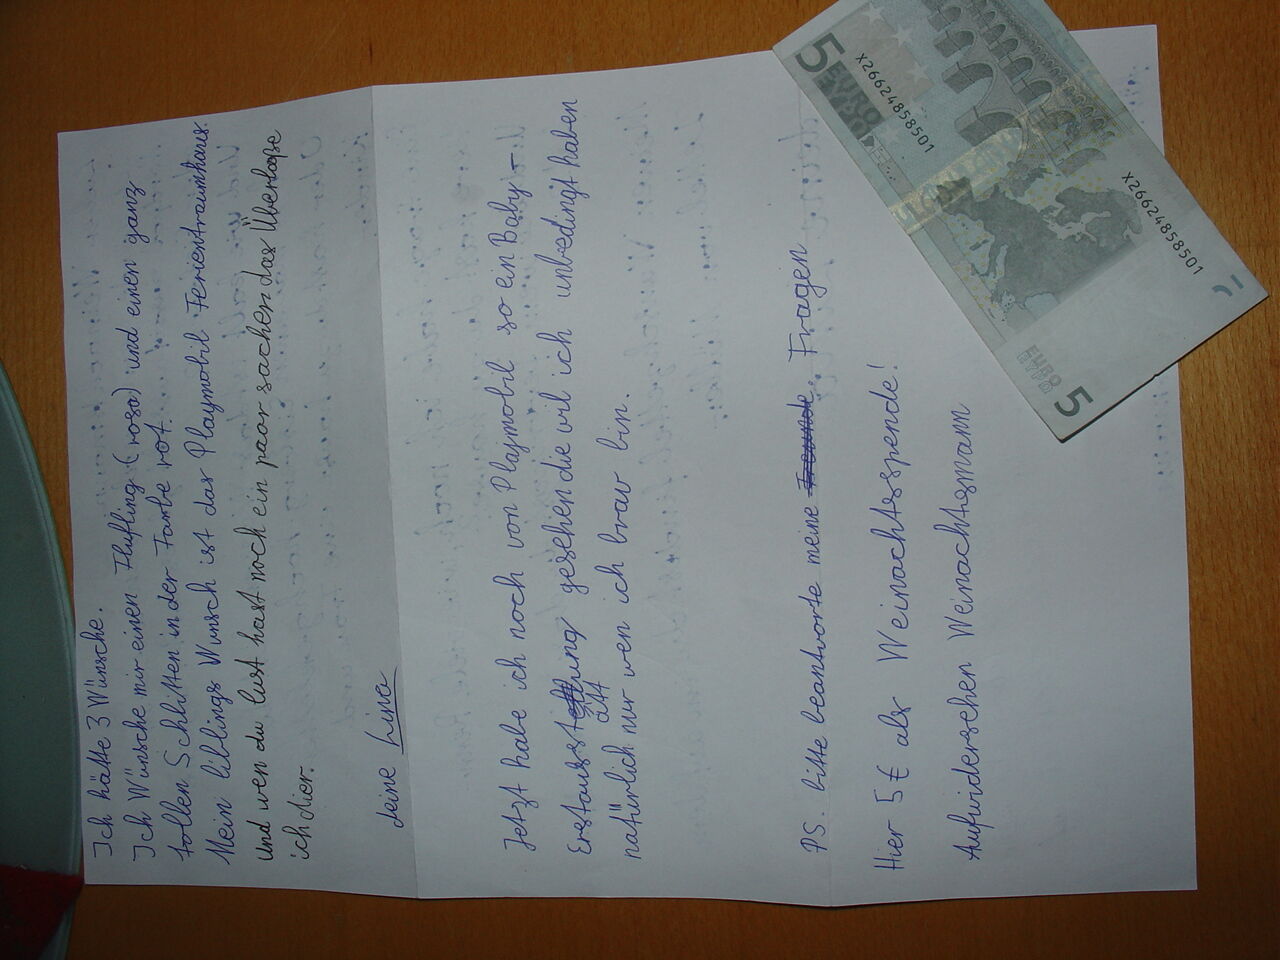 Ich hätte 3 Wünsche.
Ich Wünsche mir einen Flufling (rosa) und einen ganz
tollen Schlitten in der Farbe rot.
Mein liblings Wunsch ist das Playmobil Ferientraumhaus.
Und wen du lust hast noch ein paar sachen das Überlaße
ich dier.
deine Lina
Jetzt habe ich noch von Playmobil so ein Baby-
Erstausstattung gesehen die wil ich unbedingt haben
natürlich nur wen ich brav bin.
PS. bitte beantworte meine Fragen
Hier 5€ als Weinachtsspende!
Aufwidersehen Weinachtsmann
5 EURO
ΕΥΡΩ
X26624858501
X26624858501
EURO
ΕΥΡΩ
5